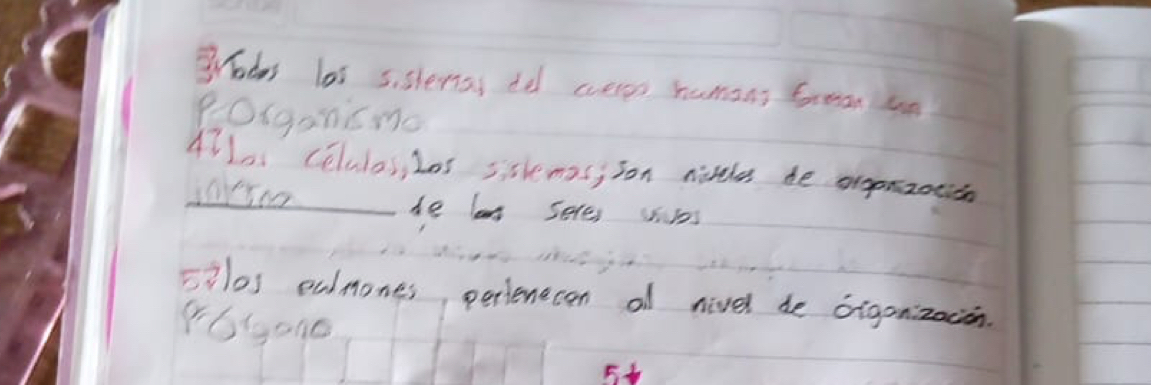 3) Todos los sistemas del cuerpo humano forman un
R Organismo
4) Los células, Los sistemas, son niveles de organización
interna de los seres vivos
5) los pulmones, pertenecen al nivel de organización.
R Organo
5+